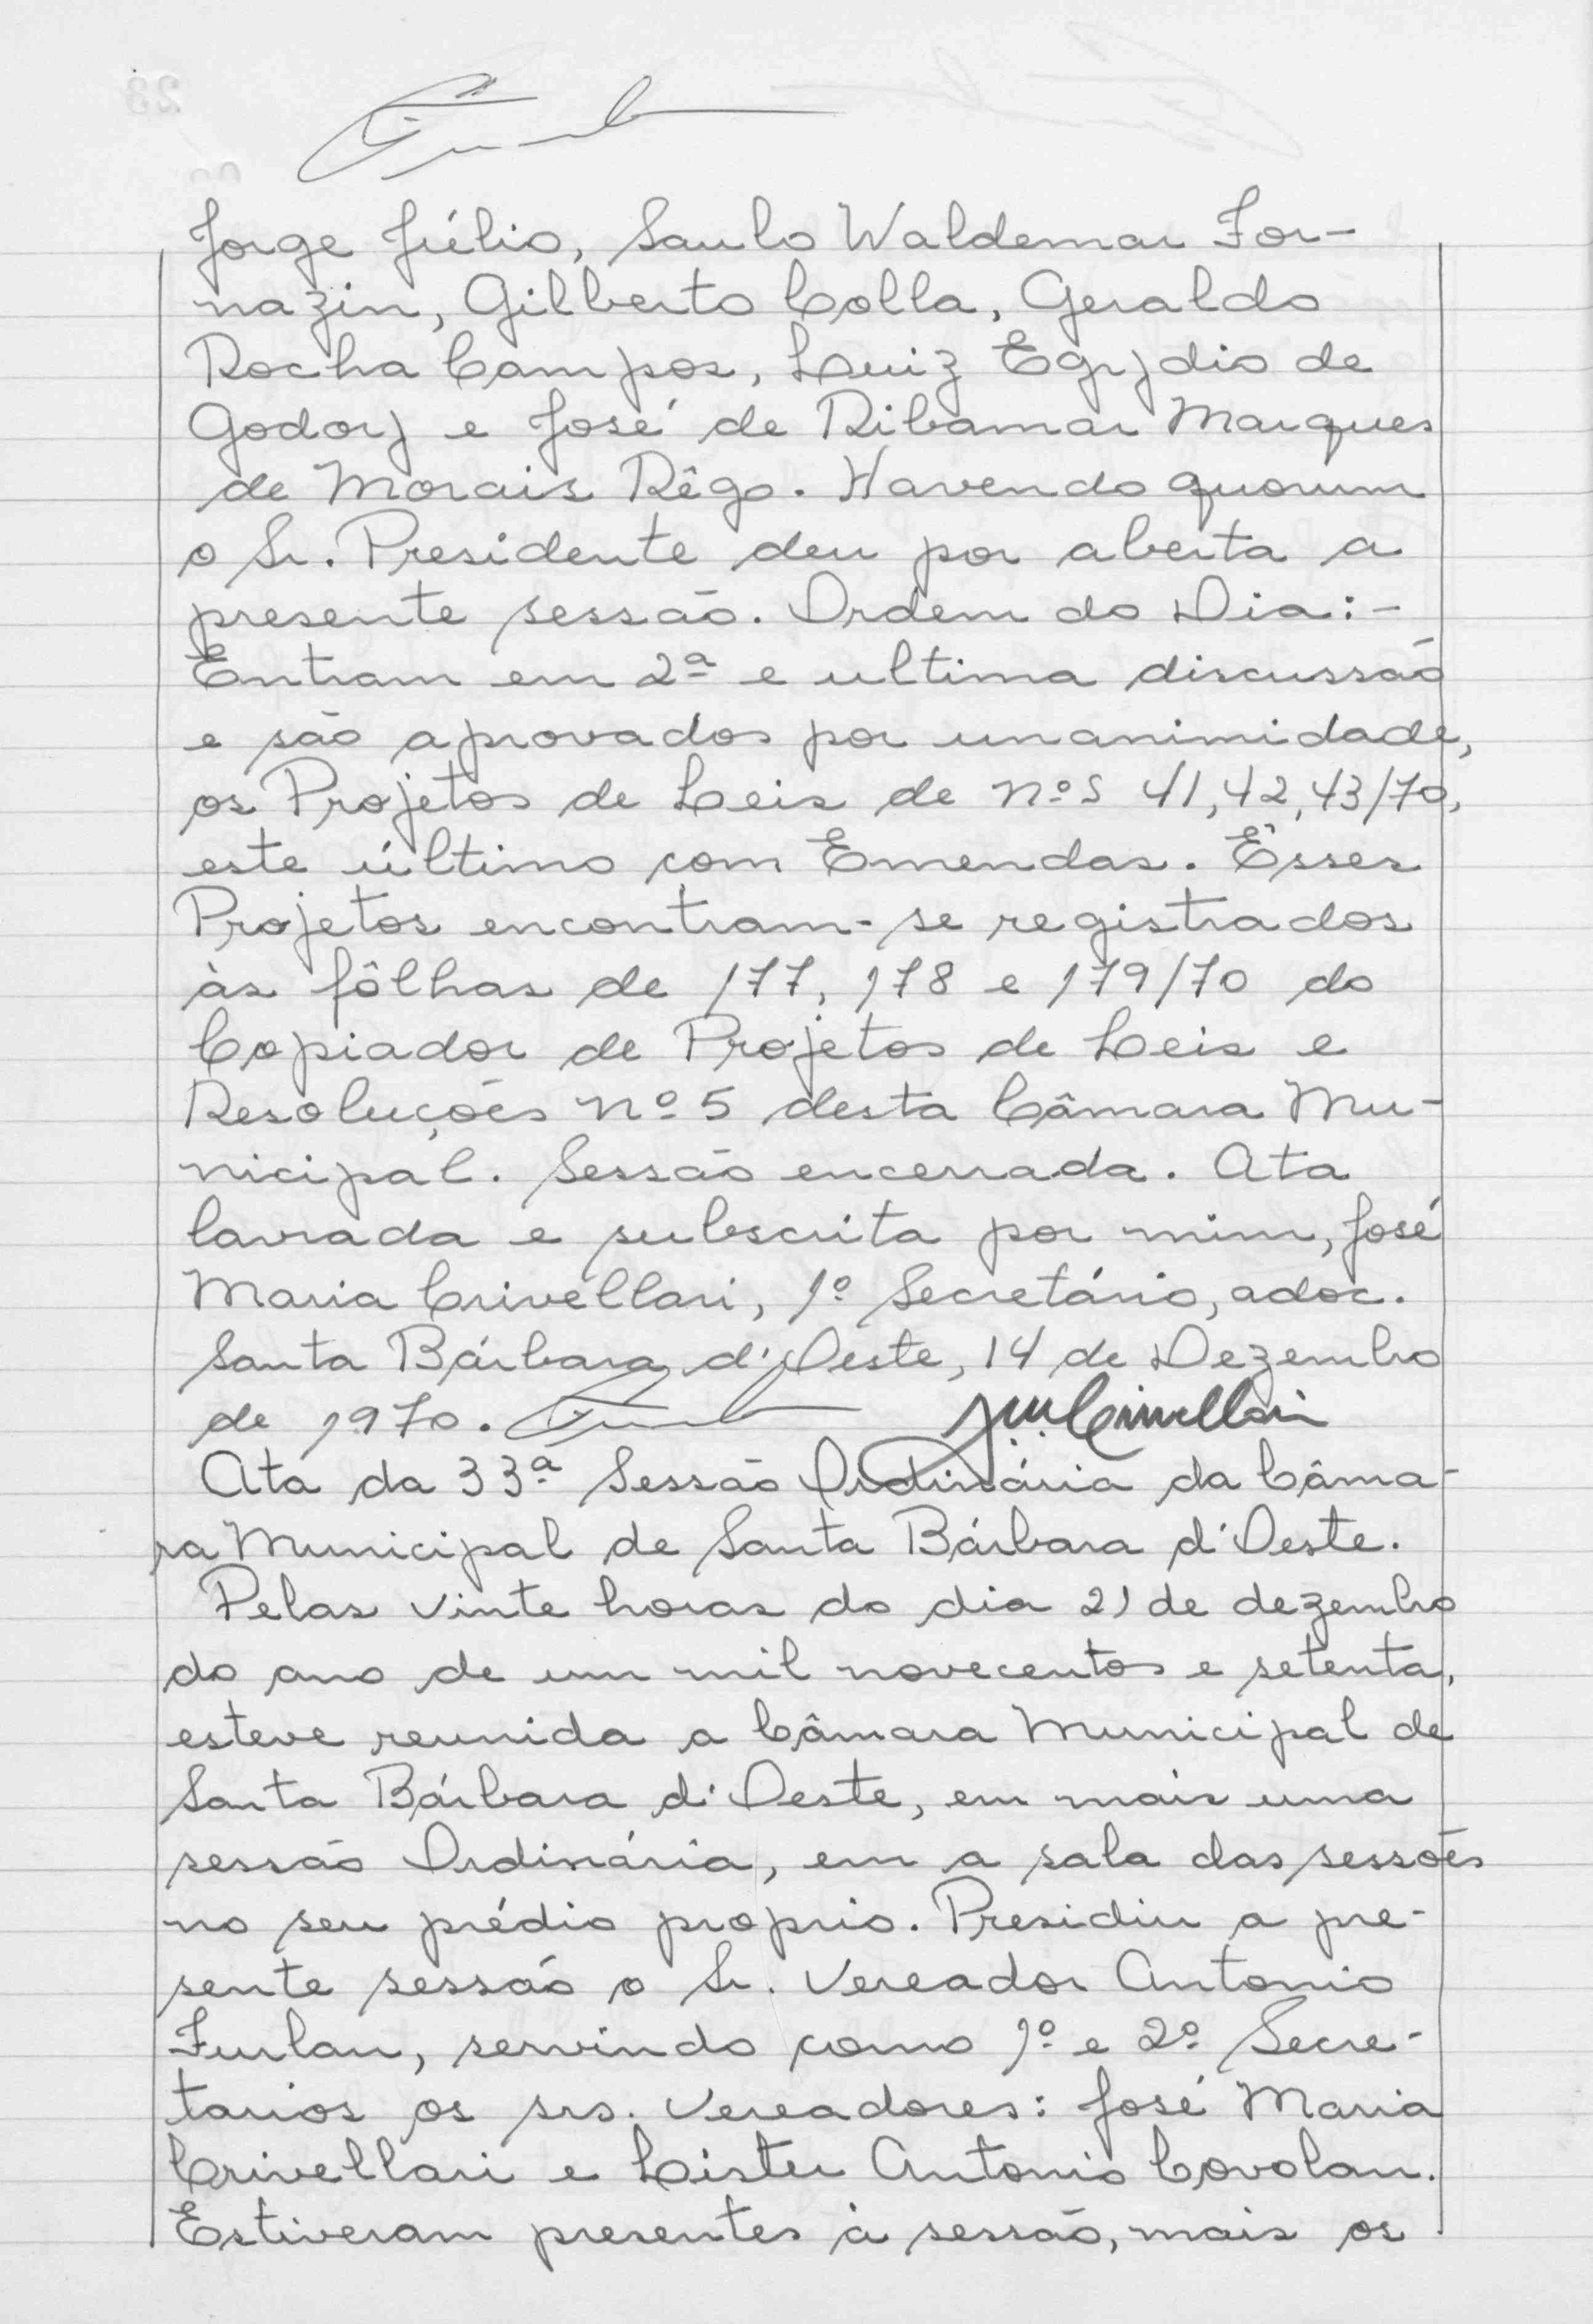 Jorge Júlio, Saulo Waldemar For-
nazin, Gilberto Colla, Geraldo
Rocha Campos, Luiz Egydio de
Godoy e José de Ribamar Marques
de Morais Rêgo. Havendo quorum
o Sr. Presidente deu por aberta a
presente sessão. Ordem do Dia:-
Entram em 2ª e ultima discussão
e são aprovados por unanimidade,
os Projetos de Leis de nºs 41, 42, 43/70,
este último com Emendas. Êsses
Projetos encontram-se registrados
às fôlhas de 177, 178 e 179/70 do
Copiador de Projetos de Leis e
Resoluções nº 5 desta Câmara Mu-
nicipal. Sessão encerrada. Ata
lavrada e subscrita por mim, José
Maria Crivellari, 1º Secretário, adoc.
Santa Bárbara d'Oeste, 14 de Dezembro
de 1970. J.M. Crivellari
Ata da 33ª Sessão Ordinária da Câma-
ra Municipal de Santa Bárbara d'Oeste.
Pelas vinte horas do dia 21 de dezembro
do ano de um mil novecentos e setenta,
esteve reunida a Câmara Municipal de
Santa Bárbara d'Oeste, em mais uma
sessão Ordinária, em a sala das sessões
no seu prédio proprio. Presidiu a pre-
sente sessão o Sr. Vereador Antonio
Furlan, servindo como 1º e 2º Secre-
tarios os srs. Vereadores: José Maria
Crivellari e Lister Antonio Covolan.
Estiveram presentes à sessão, mais os